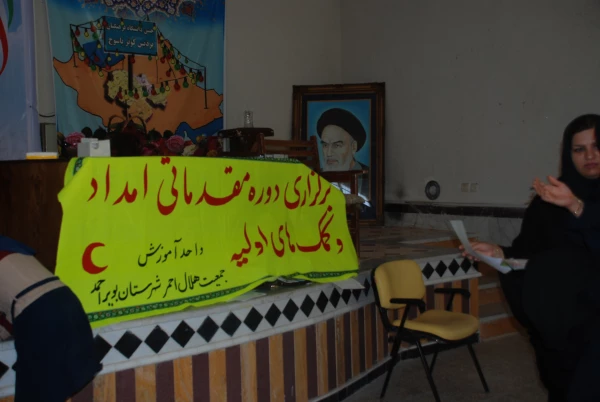 برگزاری دوره مقدماتی امداد
و کمک های اولیه
واحد آموزش
جمعیت هلال احمر شهرستان بویراحمد